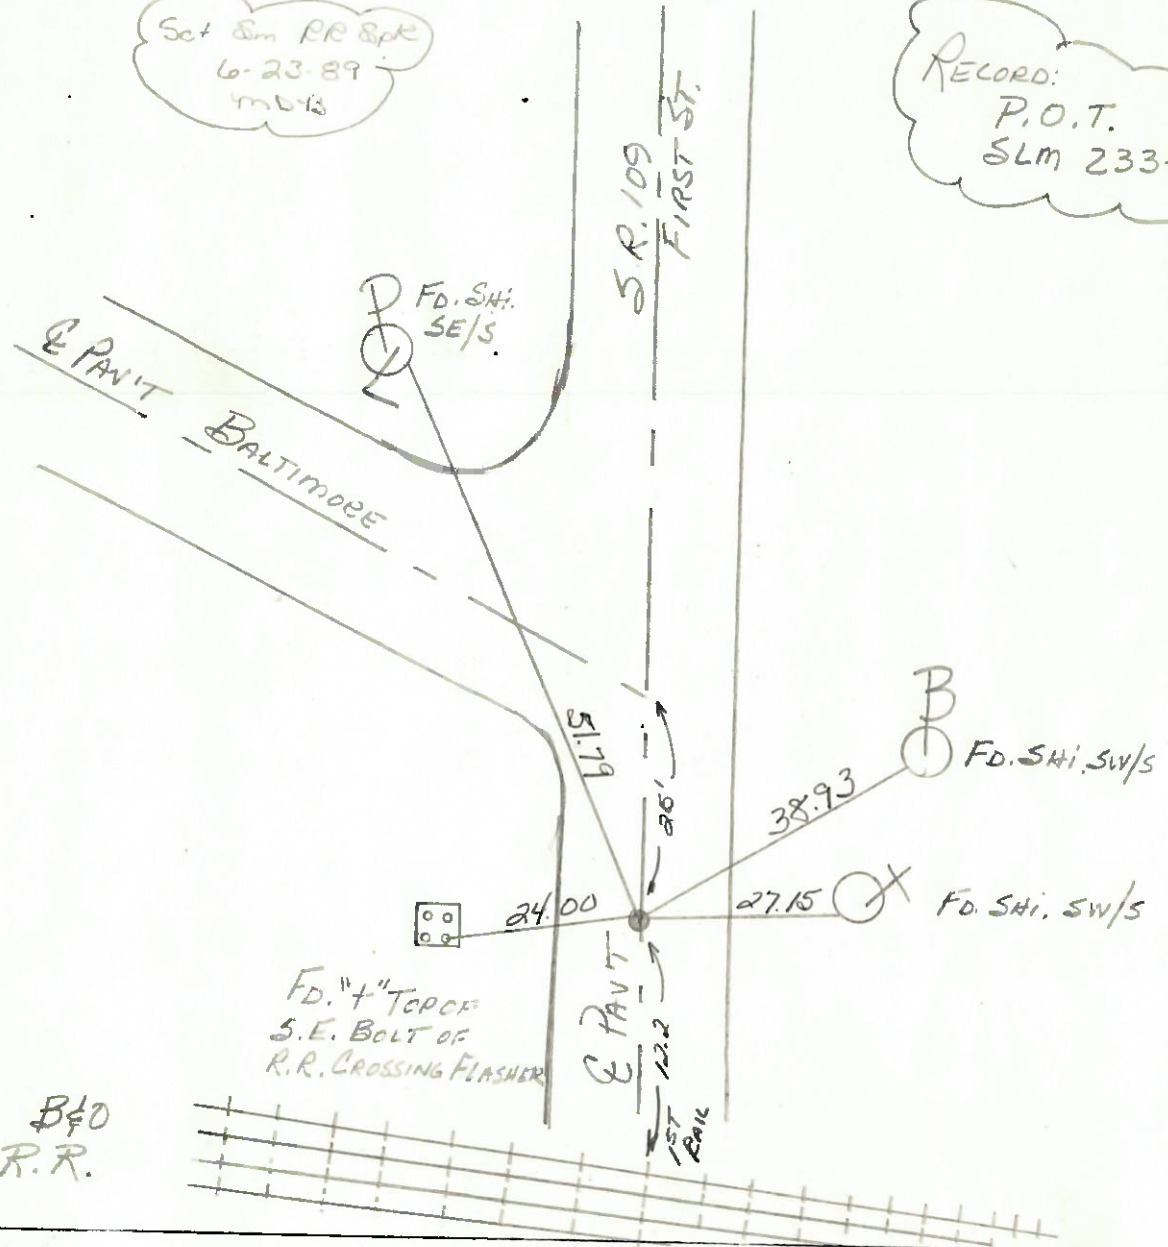 Set 8m RR Spk
6-23-89
RECORD:
P.O.T.
SLM 233-
S.R. 109
FIRST ST.
P
L
FD. SHI.
SE/S
℄ PAV'T
BALTIMORE
51.79
B
FD. SHI. SW/S
38.93
X
FD. SHI. SW/S
27.15
24.00
FD. "+" TOP OF
S.E. BOLT OF
R.R. CROSSING FLASHER
℄ PAV'T
12.2
1ST
RAIL
B&O
R.R.